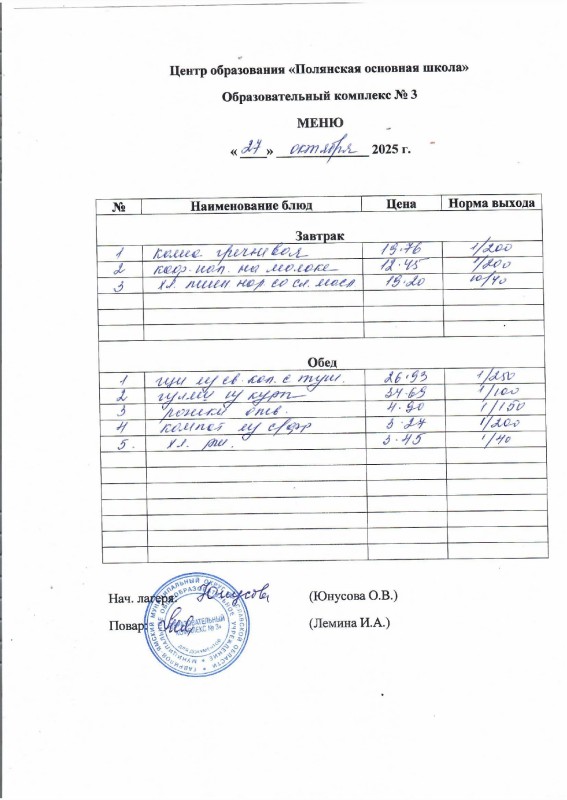 Центр образования «Полянская основная школа»
Образовательный комплекс № 3
МЕНЮ
« 27 » октября 2025 г.
№ Наименование блюд Цена Норма выхода
Завтрак
1 каша гречневая 19.76 1/200
2 коф. нап. на молоке 12.45 1/200
3 хл. пшен нар со сл. масл 19.20 10/40
Обед
1 щи из св. кап. с туш. 26.93 1/250
2 гуляш из куры 34.69 1/100
3 рожки отв. 4.90 1/150
4 компот из с/фр 3.27 1/200
5. хл. рж. 3.45 1/40
Нач. лагеря: Юнусова (Юнусова О.В.)
Повар: (Лемина И.А.)